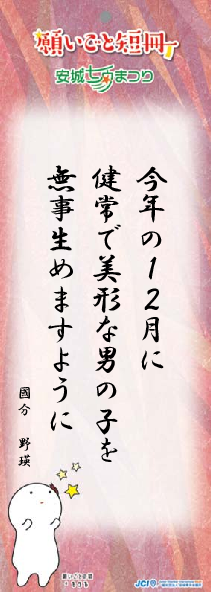 願いごと短冊
安城七夕まつり
今年の12月に
健常で美形な男の子を
無事生めますように
國分 野瑛
願いごと短冊
JCI